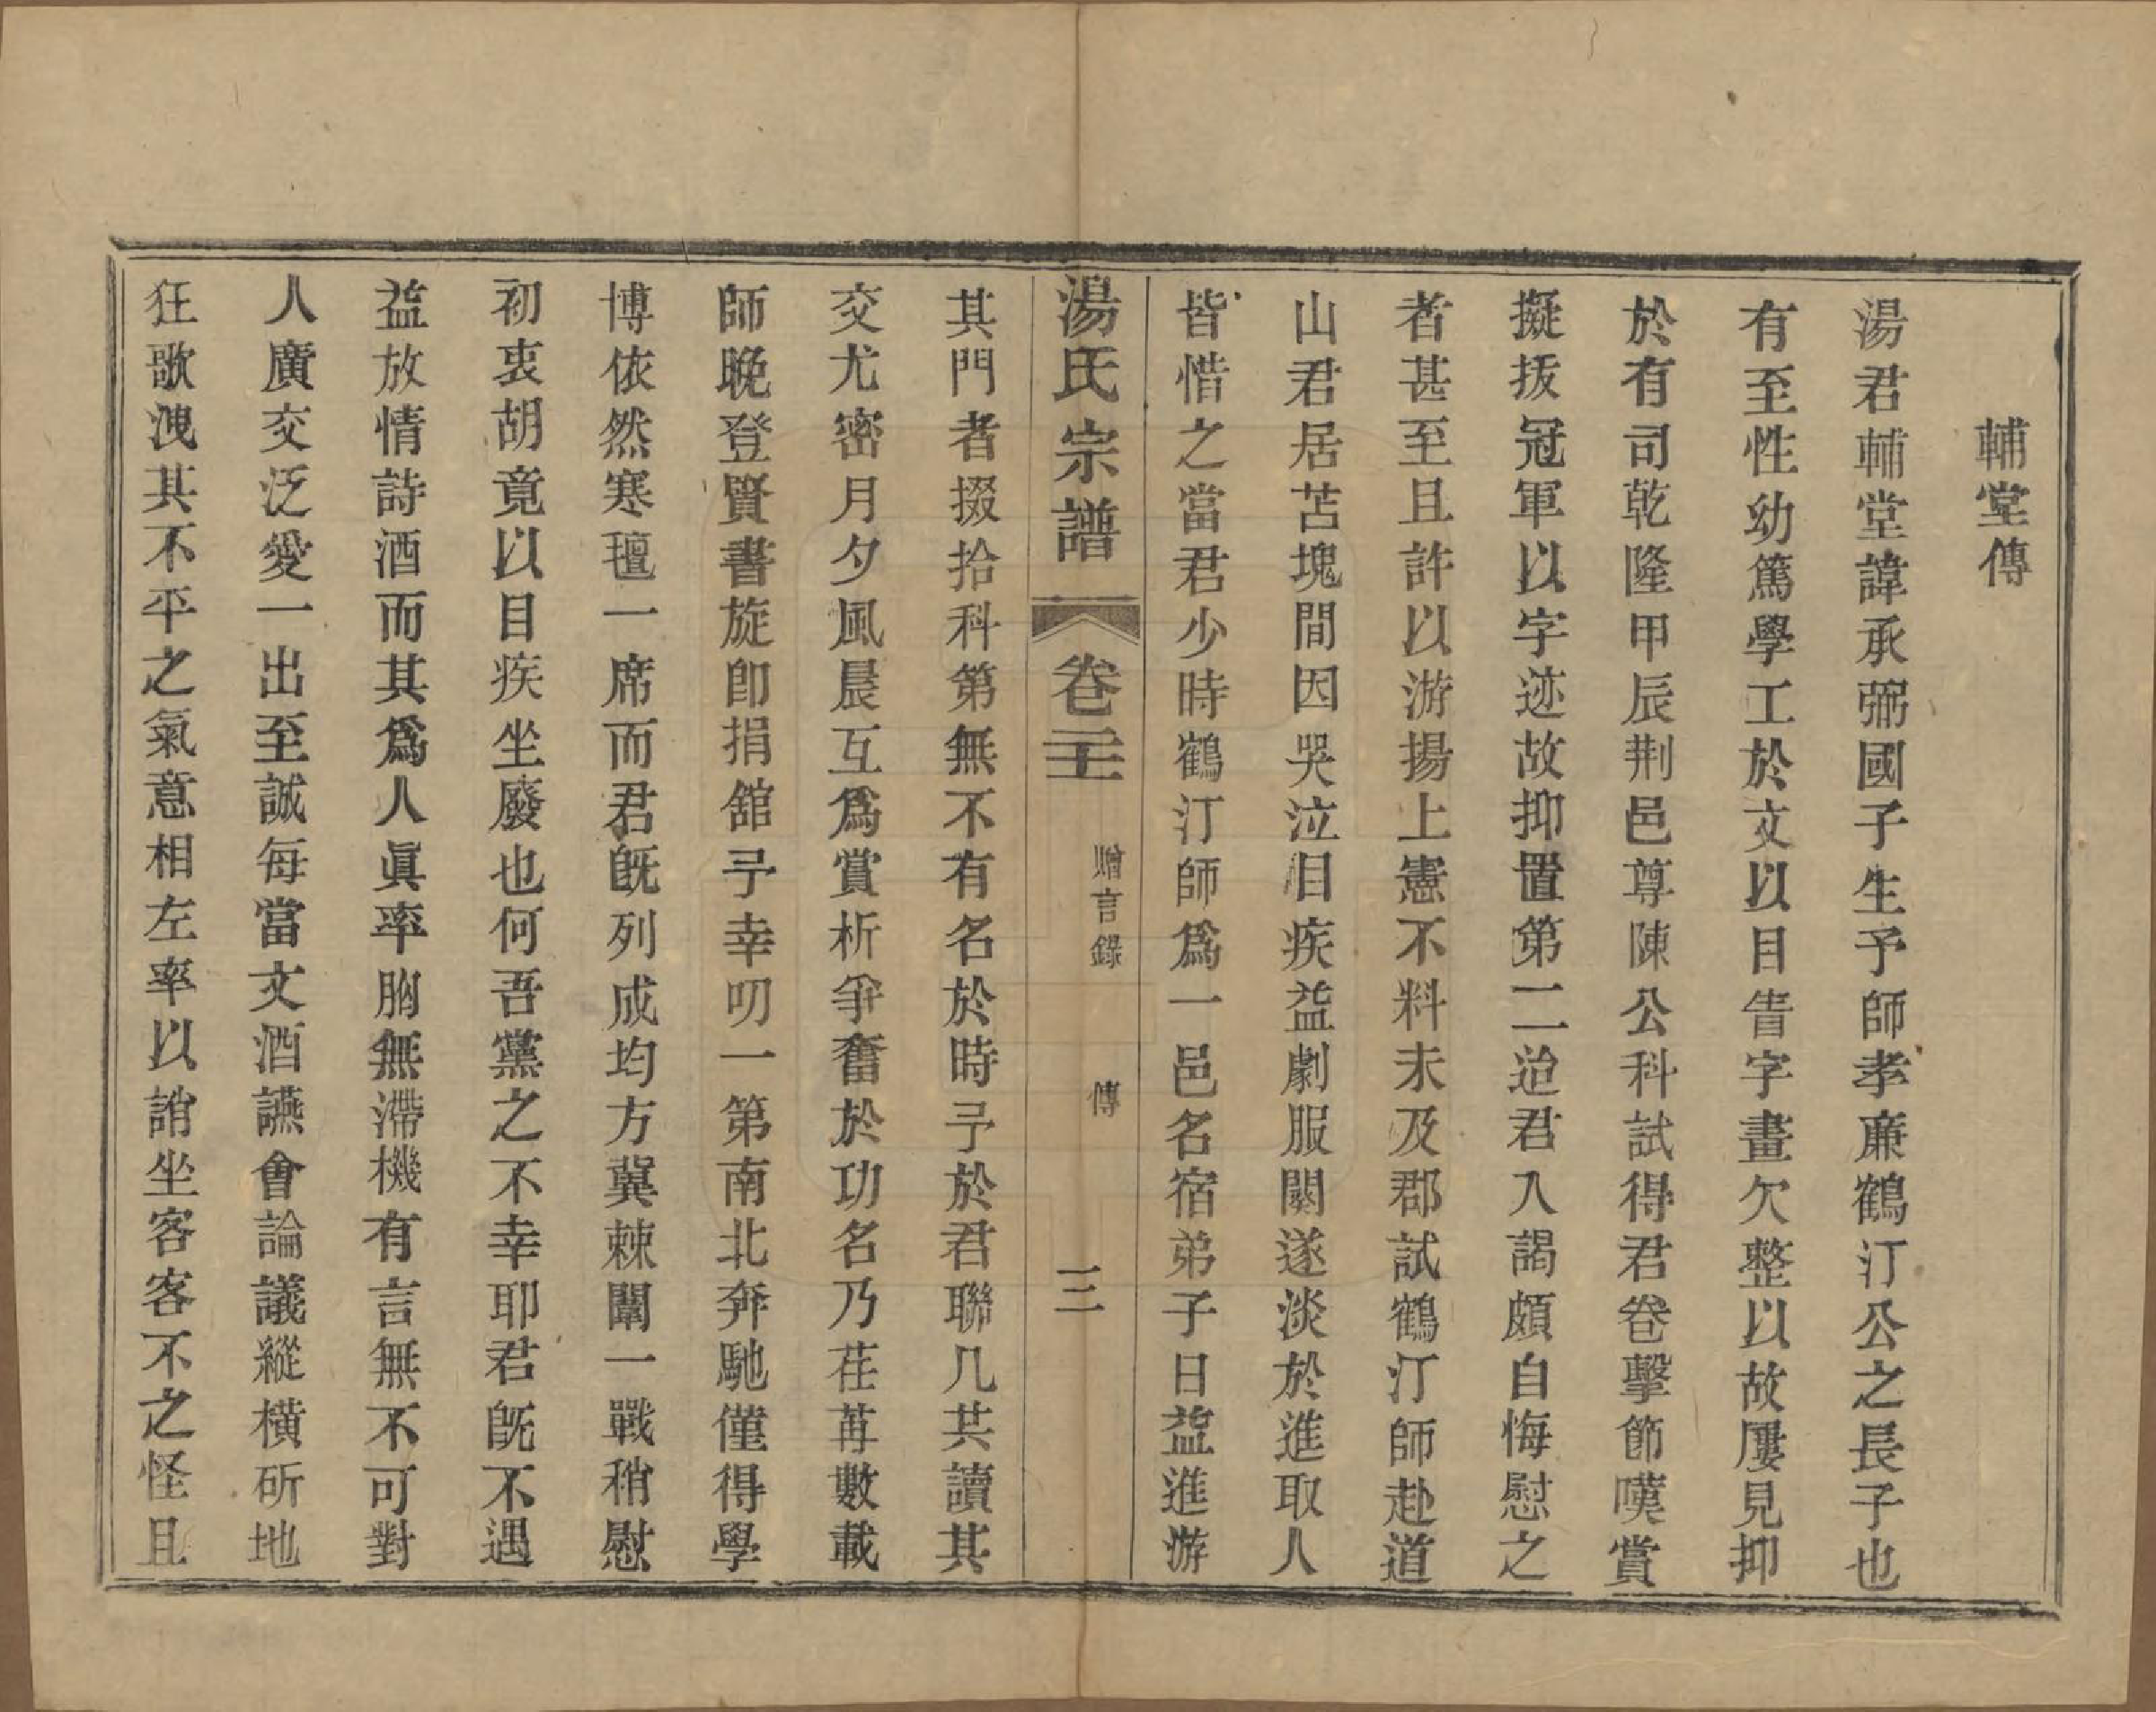 輔堂傳
湯君輔堂諱承弼國子生予師孝廉鶴汀公之長子也
有至性幼篤學工於文以目眚字畫欠整以故屢見抑
於有司乾隆甲辰荆邑尊陳公科試得君卷擊節嘆賞
擬拔冠軍以字迹故抑置第二迨君入謁頗自悔慰之
者甚至且許以游揚上憲不料未及郡試鶴汀師赴道
山君居苫塊間因哭泣目疾益劇服闋遂淡於進取人
皆惜之當君少時鶴汀師爲一邑名宿弟子日益進游
湯氏宗譜 卷二十二 贈言錄 傳 三
其門者掇拾科第無不有名於時予於君聯几共讀其
交尤密月夕風晨互爲賞析爭奮於功名乃荏苒數載
師晚登賢書旋卽捐舘予幸叨一第南北奔馳僅得學
博依然寒氊一席而君旣列成均方冀棘闈一戰稍慰
初衷胡竟以目疾坐廢也何吾黨之不幸耶君旣不遇
益放情詩酒而其爲人眞率胸無滯機有言無不可對
人廣交泛愛一出至誠每當文酒讌會論議縱橫斫地
狂歌洩其不平之氣意相左率以誚坐客客不之怪且